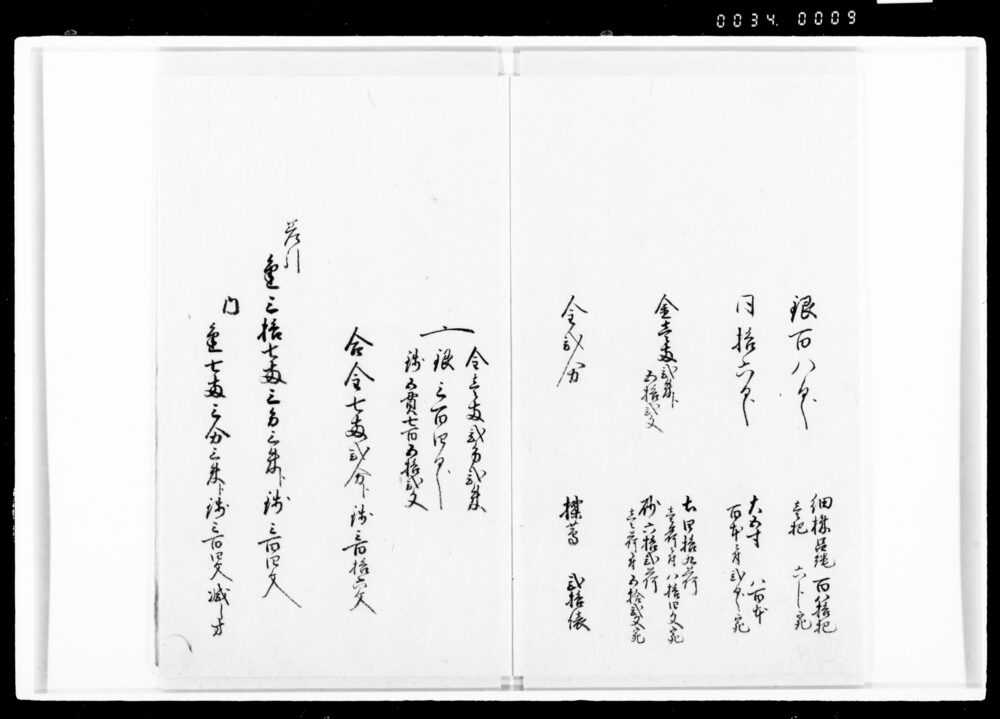 0034. 0009
銀百八匁
細棕呂縄 百八拾把
壱把 六分宛
同拾六匁
大五寸 八百本
百本ニ付弐匁宛
金壱両弐朱ト
五拾弐文
土四拾九荷
壱荷ニ付八拾四文宛
砂六拾弐荷
壱荷ニ付五拾弐文宛
金弐分
揉蒿 弐拾俵
金壱両弐分弐朱
〆銀三百四匁
銭五貫七百五拾弐文
合金七両弐分ト銭三百拾六文
差引
金三拾七両三分三朱ト銭三百四文
内
金七両三分三朱ト銭三百四文 減し方